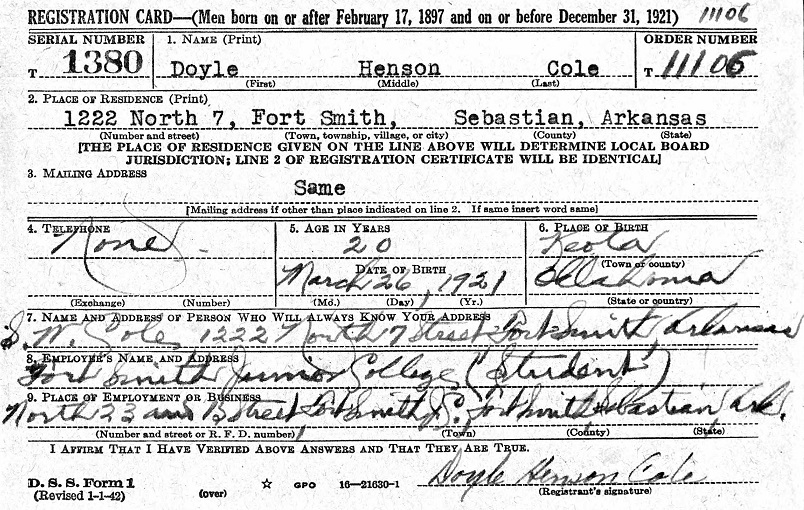 REGISTRATION CARD—(Men born on or after February 17, 1897 and on or before December 31, 1921) 11106
SERIAL NUMBER 1. NAME (Print) ORDER NUMBER
T 1380 Doyle Henson Cole T 11106
(First) (Middle) (Last)
2. PLACE OF RESIDENCE (Print)
1222 North 7, Fort Smith, Sebastian, Arkansas
(Number and street) (Town, township, village, or city) (County) (State)
[THE PLACE OF RESIDENCE GIVEN ON THE LINE ABOVE WILL DETERMINE LOCAL BOARD
JURISDICTION; LINE 2 OF REGISTRATION CERTIFICATE WILL BE IDENTICAL]
3. MAILING ADDRESS
Same
[Mailing address if other than place indicated on line 2. If same insert word same]
4. TELEPHONE 5. AGE IN YEARS 6. PLACE OF BIRTH
None 20 Keota
DATE OF BIRTH (Town or county)
March 26, 1921 Oklahoma
(Exchange) (Number) (Mo.) (Day) (Yr.) (State or country)
7. NAME AND ADDRESS OF PERSON WHO WILL ALWAYS KNOW YOUR ADDRESS
S. W. Cole, 1222 North 7 Street Fort Smith, Arkansas
8. EMPLOYER'S NAME AND ADDRESS
Fort Smith Junior College (Student)
9. PLACE OF EMPLOYMENT OR BUSINESS
North 23 and B Street Fort Smith, Fort Smith Sebastian Ark.
(Number and street or R. F. D. number) (Town) (County) (State)
I AFFIRM THAT I HAVE VERIFIED ABOVE ANSWERS AND THAT THEY ARE TRUE.
D. S. S. Form 1
(Revised 1-1-42) (over) ☆ GPO 16—21630-1 Doyle Henson Cole
(Registrant's signature)